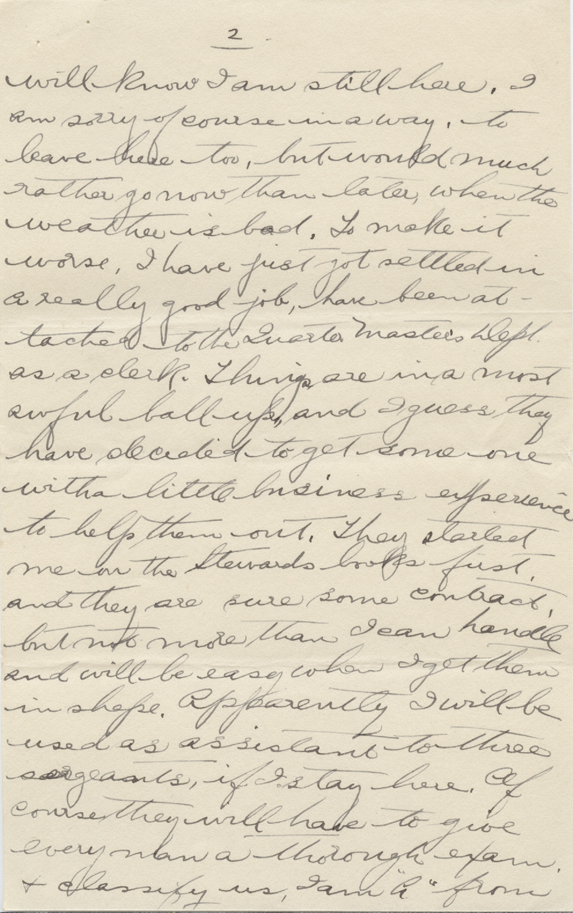 2
will know I am still here. I
am sorry of course in a way, to
leave here too, but would much
rather go now than later, when the
weather is bad. To make it
worse, I have just got settled in
a really good job, have been at-
tached to the Quarter Masters Dept.
as a clerk. Things are in a most
awful ball-up, and I guess they
have decided to get some one
with a little business experience
to help them out. They started
me on the Stewards books first,
and they are sure some contract,
but not more than I can handle
and will be easy when I get them
in shape. Apparently I will be
used as assistant to three
sergeants, if I stay here. Of
course they will have to give
every man a thorough exam.
+ classify us, I am "A" from